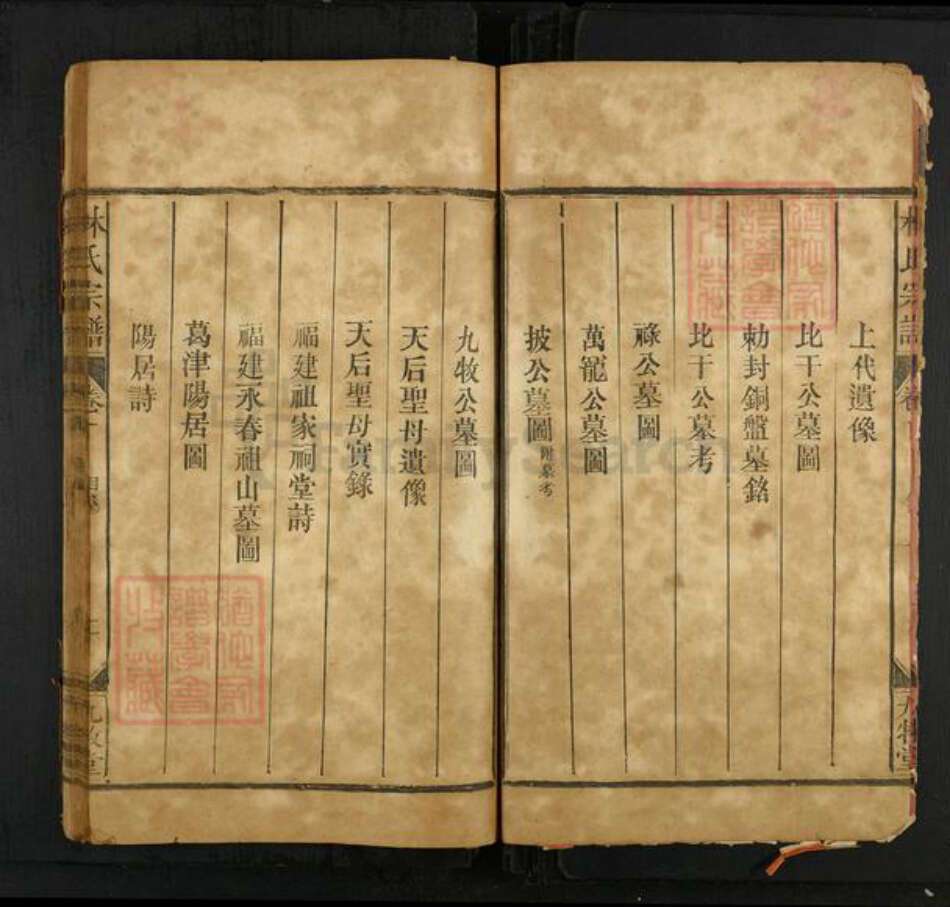 上代遺像
比干公墓圖
勅封銅盤墓銘
比干公墓考
祿公墓圖
萬寵公墓圖
披公墓圖附墓考
九牧公墓圖
天后聖母遺像
天后聖母實錄
福建祖家祠堂詩
福建永春祖山墓圖
葛津陽居圖
陽居詩
林氏宗譜
卷
九牧堂